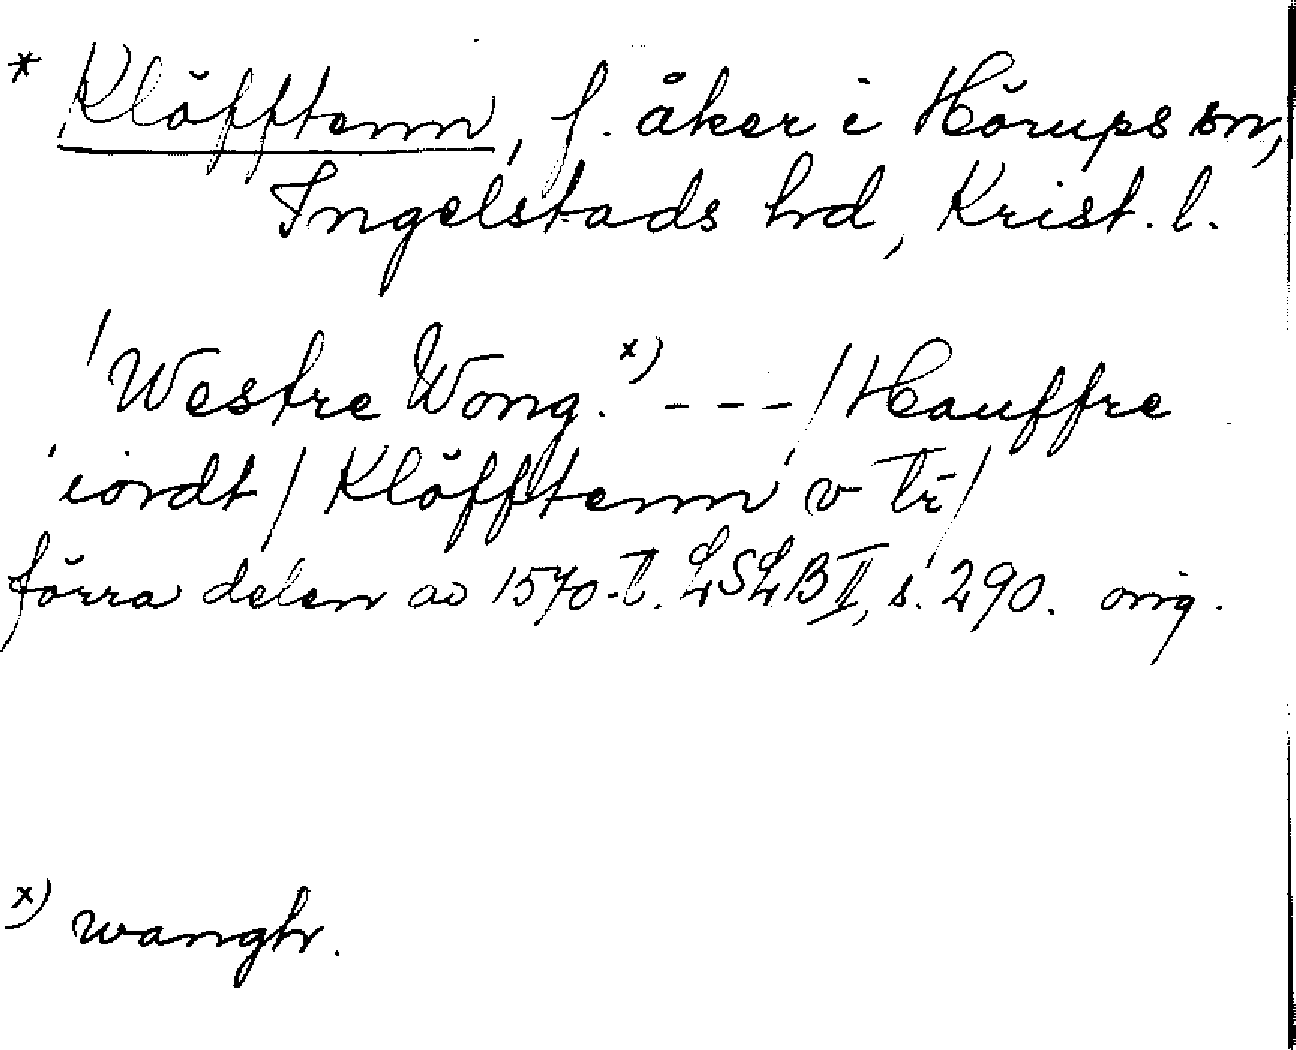 * Klöfftenn, f. åker i Hörups sn,
Ingelstads hd, Krist. l.
/Westre Wong.x) ---/Hauffre
iordt/Klöfftenn v Tr/
förra delen av 1570-t. LSLB II, s. 290. orig.
x) wangh.